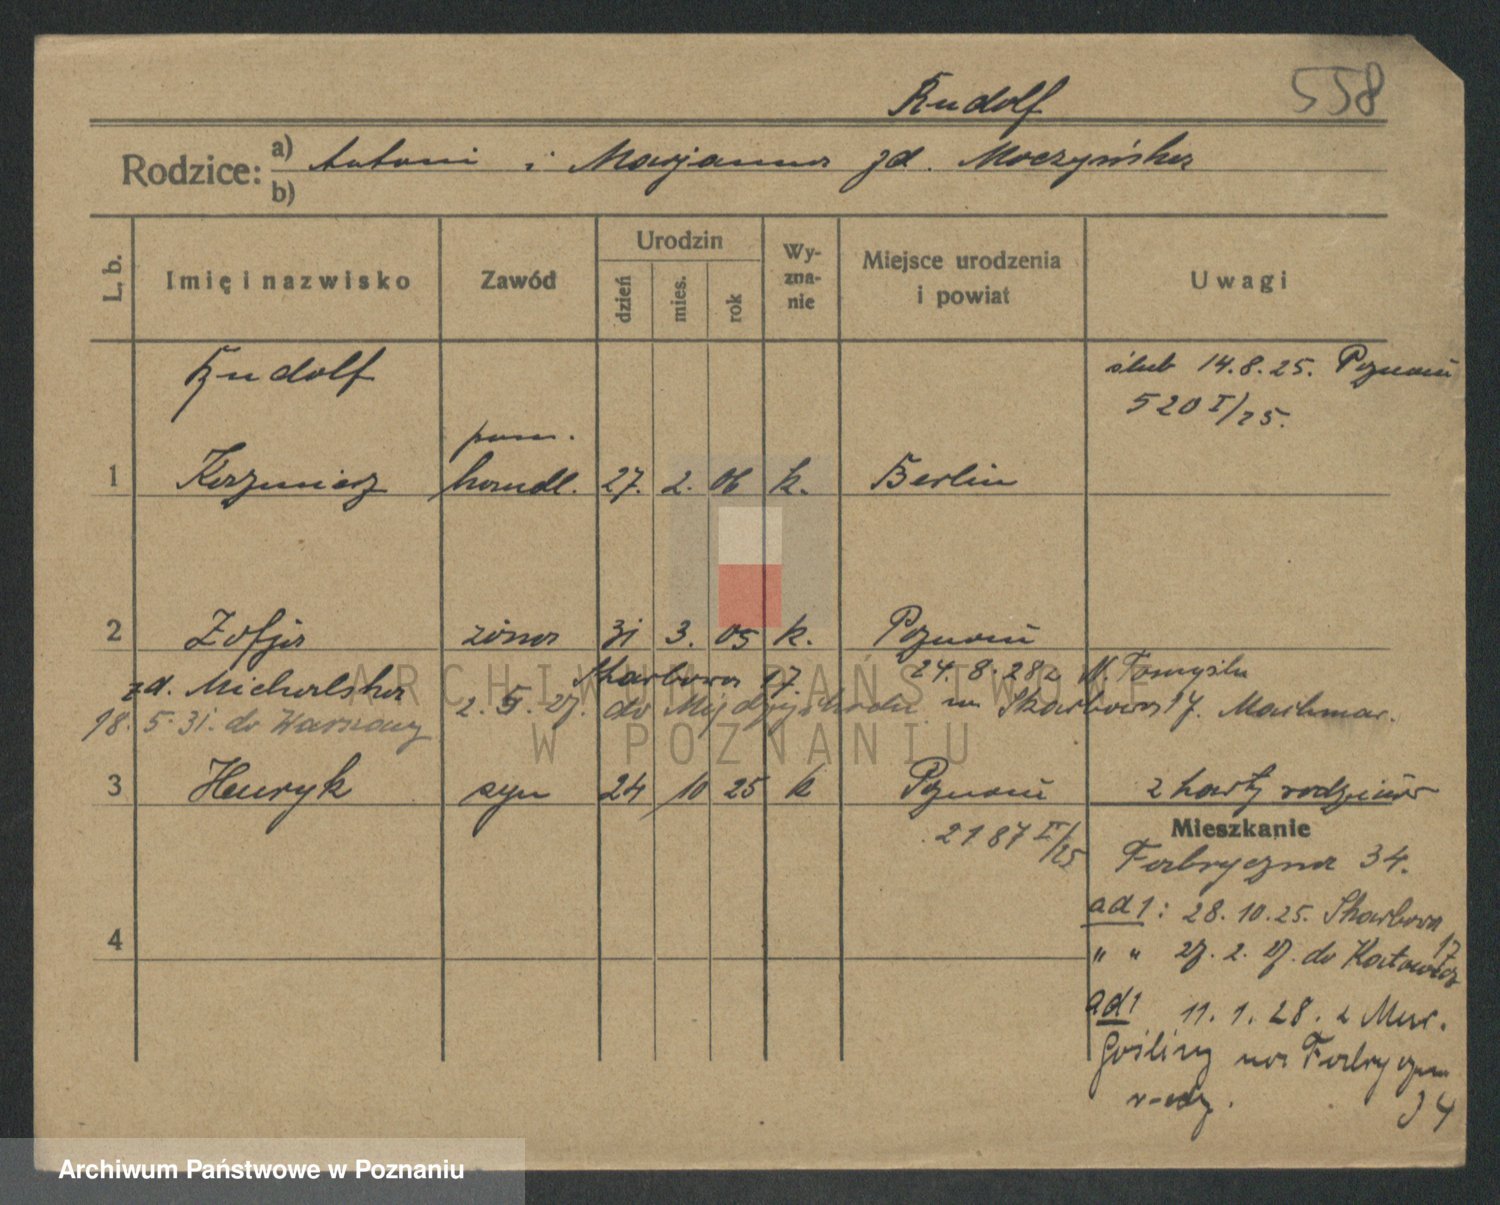 Rudolf
558
Rodzice: a) Antoni i Marjanna zd. Moczyńska
b)
L. b.
Imię i nazwisko
Zawód
Urodzin
dzień
mies.
rok
Wy-
zna-
nie
Miejsce urodzenia
i powiat
Uwagi
Rudolf
ślub 14.8.25. Poznań
520 I/25.
pom.
1 Kazimierz handl. 27. 2. 06 k. Berlin
2 Zofja żona 31 3. 05 k. Poznań
zd. Michalska Skarbowa 17. 24.8.28 z N. Tomyśla
18. 5. 31. do Warszawy 2. 5. 27. do Międzychodu na Skarbowa 17.
3 Henryk syn 24 10 25 k Poznań z karty rodziców
2187 I/25
Mieszkanie
Fabryczna 34.
ad 1: 28. 10. 25. Skarbowa 17
" " 27. 2. 27. do Katowic
4
ad 1 11. 1. 28. z Mur.
Gośliny na Fabryczna
34
ARCHIWUM PAŃSTWOWE
W POZNANIU
Archiwum Państwowe w Poznaniu